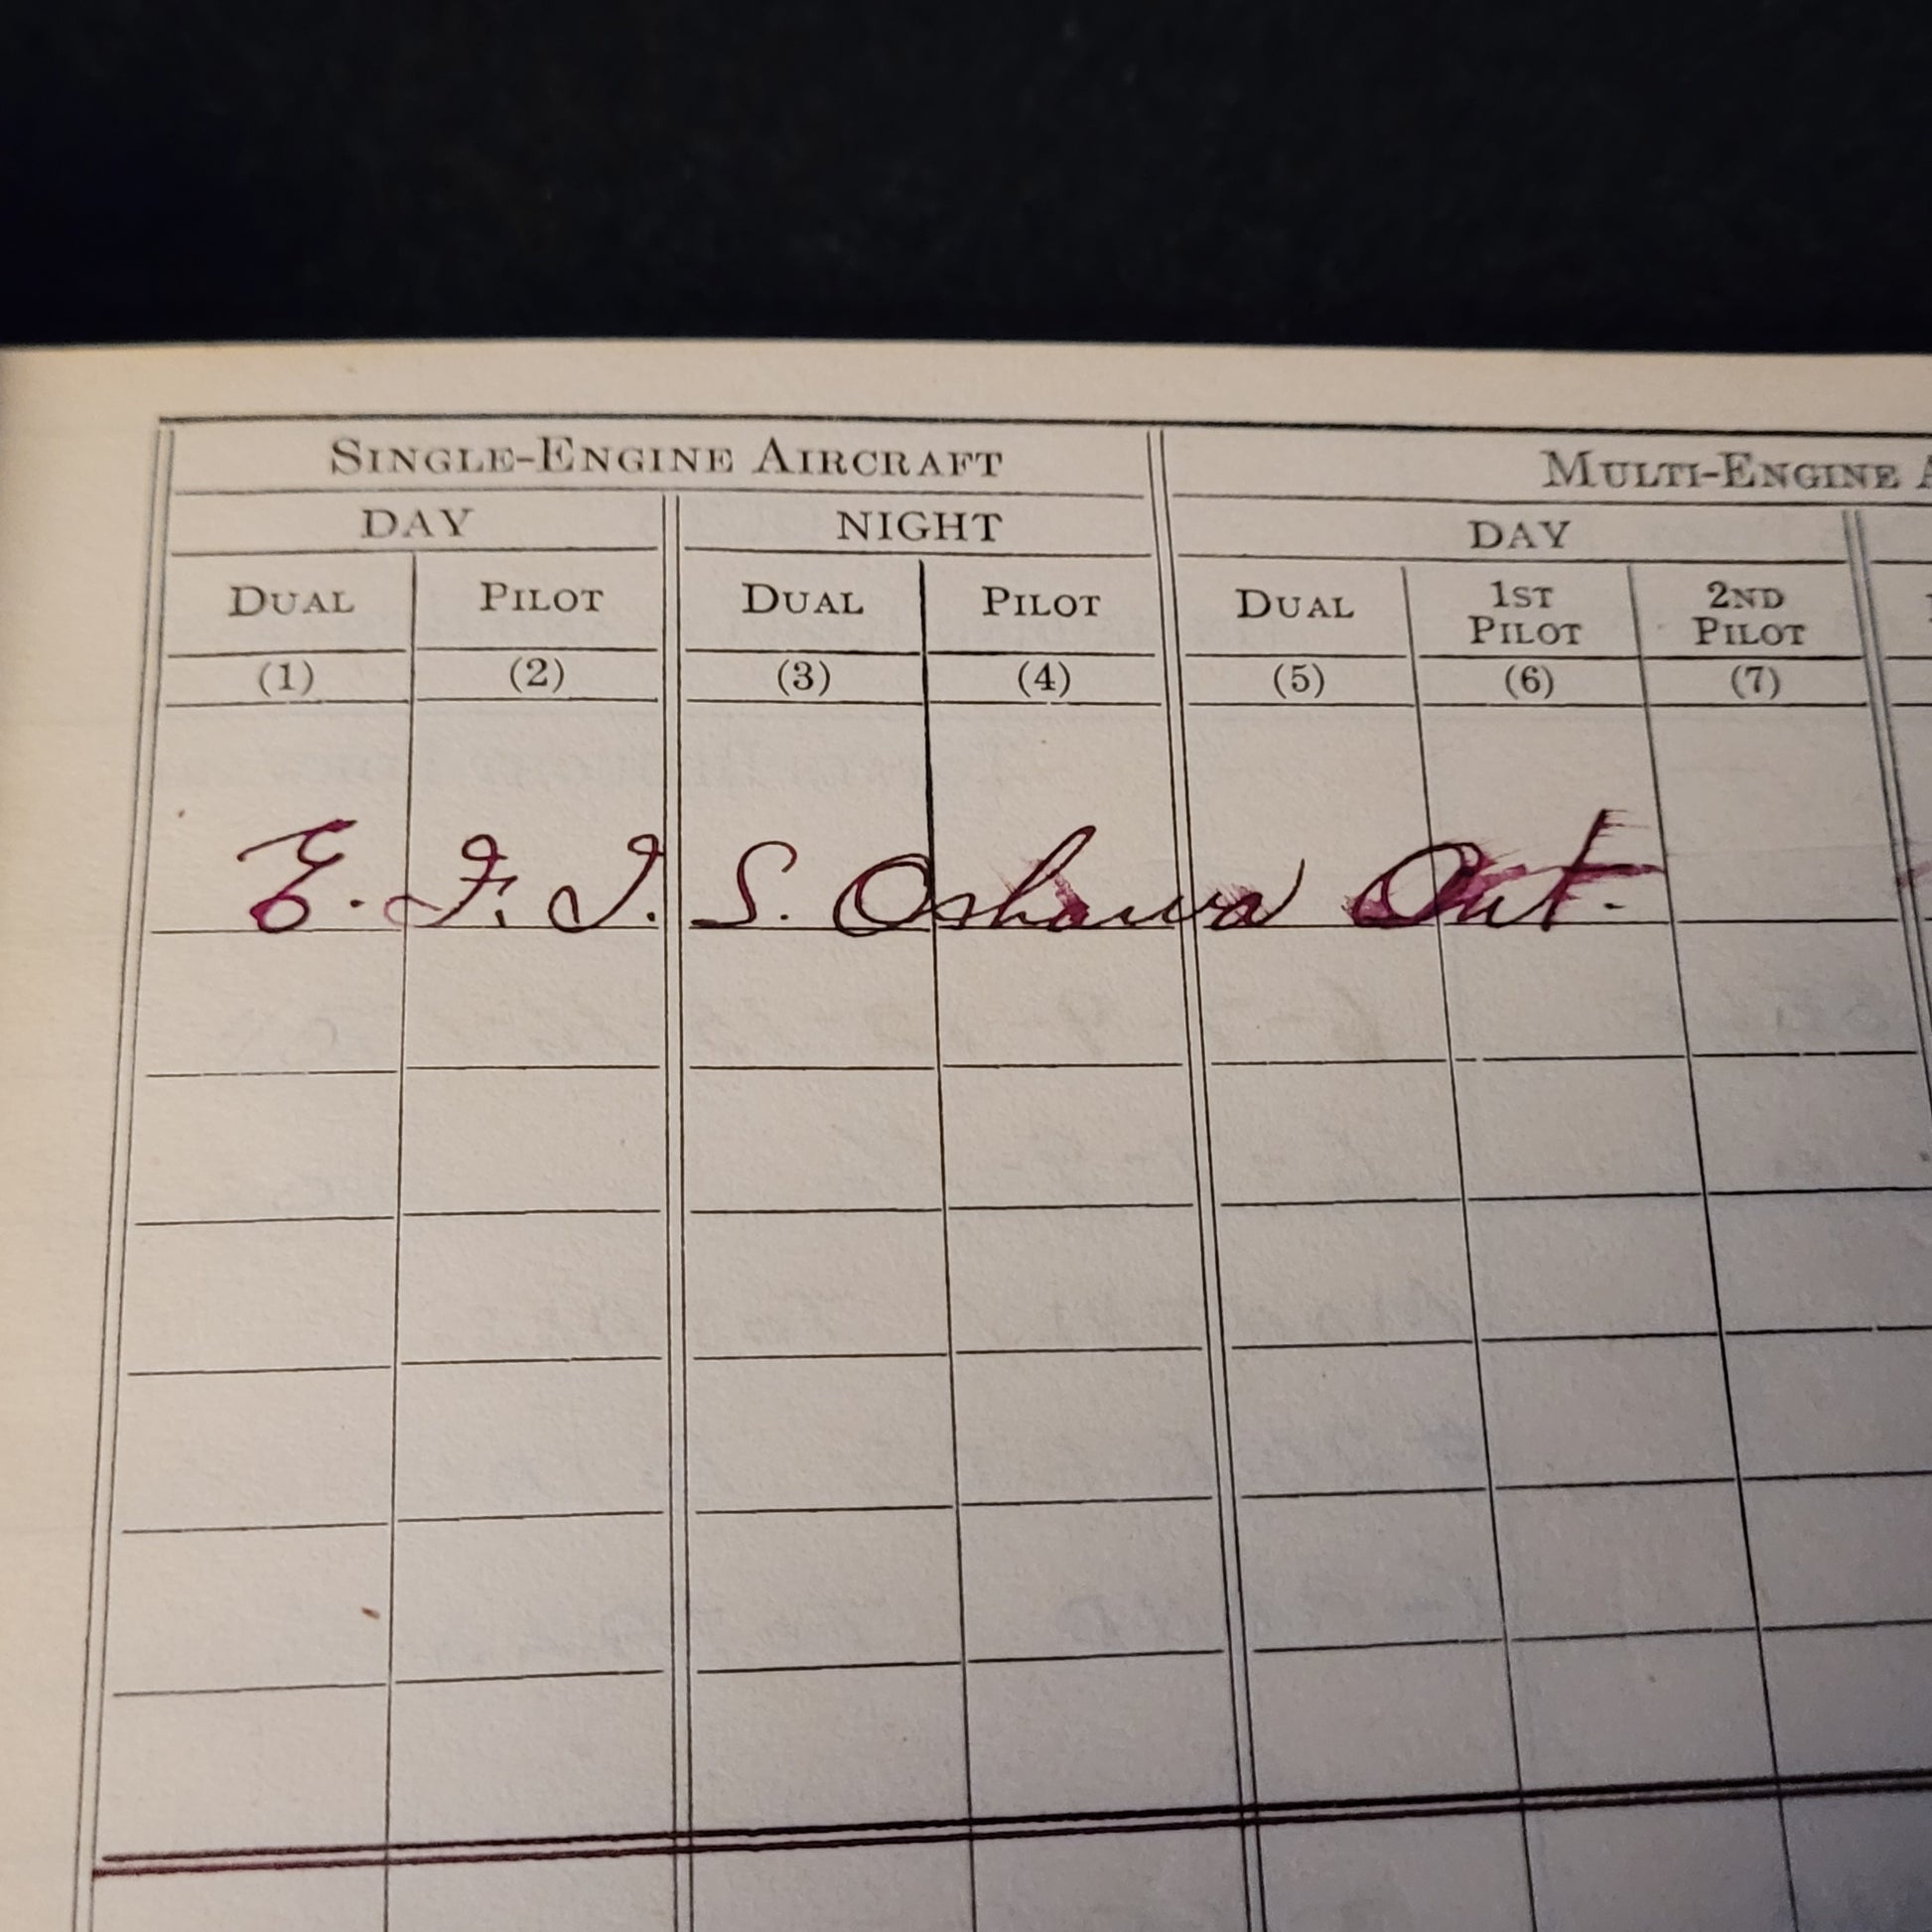 SINGLE-ENGINE AIRCRAFT
MULTI-ENGINE
DAY
NIGHT
DAY
DUAL
PILOT
DUAL
PILOT
DUAL
1ST PILOT
2ND PILOT
(1)
(2)
(3)
(4)
(5)
(6)
(7)
E. F. T. S. Oshawa Ont.